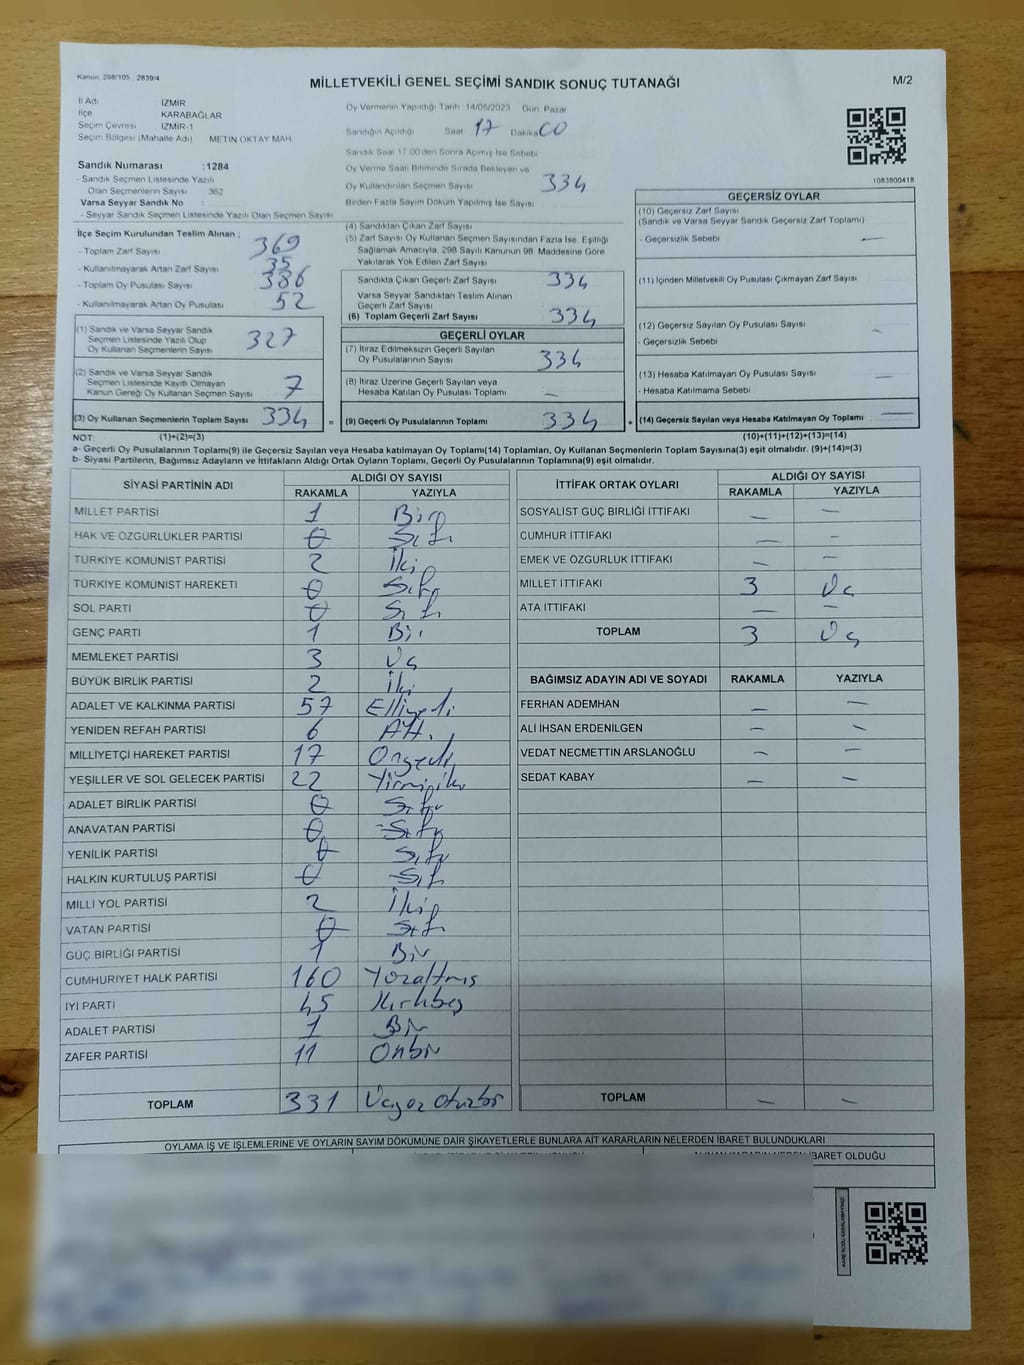 Kanun: 298/105 , 2839/4
MİLLETVEKİLİ GENEL SEÇİMİ SANDIK SONUÇ TUTANAĞI
M/2
İl Adı İZMİR
İlçe KARABAĞLAR
Seçim Çevresi İZMİR-1
Seçim Bölgesi (Mahalle Adı) METİN OKTAY MAH
Oy Vermenin Yapıldığı Tarih: 14/05/2023 Gün: Pazar
Sandığın Açıldığı Saat 17 Dakika 00
Sandık Saat 17:00'den Sonra Açılmış İse Sebebi
Oy Verme Saati Bitiminde Sırada Bekleyen ve
Oy Kullandırılan Seçmen Sayısı 334
Birden Fazla Sayım Döküm Yapılmış İse Sayısı
1083800418
Sandık Numarası :1284
- Sandık Seçmen Listesinde Yazılı
Olan Seçmenlerin Sayısı 362
Varsa Seyyar Sandık No :
- Seyyar Sandık Seçmen Listesinde Yazılı Olan Seçmen Sayısı
İlçe Seçim Kurulundan Teslim Alınan ;
- Toplam Zarf Sayısı 369
- Kullanılmayarak Artan Zarf Sayısı 35
- Toplam Oy Pusulası Sayısı 386
- Kullanılmayarak Artan Oy Pusulası 52
(1) Sandık ve Varsa Seyyar Sandık
Seçmen Listesinde Yazılı Olup
Oy Kullanan Seçmenlerin Sayısı 327
(2) Sandık ve Varsa Seyyar Sandık
Seçmen Listesinde Kayıtlı Olmayan
Kanun Gereği Oy Kullanan Seçmen Sayısı 7
(3) Oy Kullanan Seçmenlerin Toplam Sayısı 334 =
(4) Sandıktan Çıkan Zarf Sayısı
(5) Zarf Sayısı Oy Kullanan Seçmen Sayısından Fazla İse, Eşitliği
Sağlamak Amacıyla, 298 Sayılı Kanunun 98. Maddesine Göre
Yakılarak Yok Edilen Zarf Sayısı
Sandıkta Çıkan Geçerli Zarf Sayısı 334
Varsa Seyyar Sandıktan Teslim Alınan
Geçerli Zarf Sayısı
(6) Toplam Geçerli Zarf Sayısı 334
GEÇERLİ OYLAR
(7) İtiraz Edilmeksizin Geçerli Sayılan
Oy Pusulalarının Sayısı 334
(8) İtiraz Üzerine Geçerli Sayılan veya
Hesaba Katılan Oy Pusulası Toplamı –
(9) Geçerli Oy Pusulalarının Toplamı 334 +
GEÇERSİZ OYLAR
(10) Geçersiz Zarf Sayısı
(Sandık ve Varsa Seyyar Sandık Geçersiz Zarf Toplamı)
- Geçersizlik Sebebi –
(11) İçinden Milletvekili Oy Pusulası Çıkmayan Zarf Sayısı
(12) Geçersiz Sayılan Oy Pusulası Sayısı –
- Geçersizlik Sebebi
(13) Hesaba Katılmayan Oy Pusulası Sayısı –
- Hesaba Katılmama Sebebi
(14) Geçersiz Sayılan veya Hesaba Katılmayan Oy Toplamı –
NOT: (1)+(2)=(3) (10)+(11)+(12)+(13)=(14)
a- Geçerli Oy Pusulalarının Toplamı(9) ile Geçersiz Sayılan veya Hesaba katılmayan Oy Toplamı(14) Toplamları, Oy Kullanan Seçmenlerin Toplam Sayısına(3) eşit olmalıdır. (9)+(14)=(3)
b- Siyasi Partilerin, Bağımsız Adayların ve İttifakların Aldığı Ortak Oyların Toplamı, Geçerli Oy Pusulalarının Toplamına(9) eşit olmalıdır.
SİYASİ PARTİNİN ADI ALDIĞI OY SAYISI
RAKAMLA YAZIYLA
MİLLET PARTİSİ 1 Bir
HAK VE ÖZGÜRLÜKLER PARTİSİ 0 Sıfır
TÜRKİYE KOMÜNİST PARTİSİ 2 İki
TÜRKİYE KOMÜNİST HAREKETİ 0 Sıfır
SOL PARTİ 0 Sıfır
GENÇ PARTİ 1 Bir
MEMLEKET PARTİSİ 3 Üç
BÜYÜK BİRLİK PARTİSİ 2 İki
ADALET VE KALKINMA PARTİSİ 57 Elliyedi
YENİDEN REFAH PARTİSİ 6 Altı
MİLLİYETÇİ HAREKET PARTİSİ 17 Onyedi
YEŞİLLER VE SOL GELECEK PARTİSİ 22 Yirmiiki
ADALET BİRLİK PARTİSİ 0 Sıfır
ANAVATAN PARTİSİ 0 Sıfır
YENİLİK PARTİSİ 0 Sıfır
HALKIN KURTULUŞ PARTİSİ 0 Sıfır
MİLLİ YOL PARTİSİ 2 İki
VATAN PARTİSİ 0 Sıfır
GÜÇ BİRLİĞİ PARTİSİ 1 Bir
CUMHURİYET HALK PARTİSİ 160 Yüzaltmış
İYİ PARTİ 45 Kırkbeş
ADALET PARTİSİ 1 Bir
ZAFER PARTİSİ 11 Onbir
TOPLAM 331 Üçyüz otuzbir
İTTİFAK ORTAK OYLARI ALDIĞI OY SAYISI
RAKAMLA YAZIYLA
SOSYALİST GÜÇ BİRLİĞİ İTTİFAKI – –
CUMHUR İTTİFAKI – –
EMEK VE ÖZGÜRLÜK İTTİFAKI – –
MİLLET İTTİFAKI 3 Üç
ATA İTTİFAKI – –
TOPLAM 3 Üç
BAĞIMSIZ ADAYIN ADI VE SOYADI RAKAMLA YAZIYLA
FERHAN ADEMHAN – –
ALİ İHSAN ERDENİLGEN – –
VEDAT NECMETTİN ARSLANOĞLU – –
SEDAT KABAY – –
TOPLAM – –
OYLAMA İŞ VE İŞLEMLERİNE VE OYLARIN SAYIM DÖKÜMÜNE DAİR ŞİKAYETLERLE BUNLARA AİT KARARLARIN NELERDEN İBARET BULUNDUKLARI